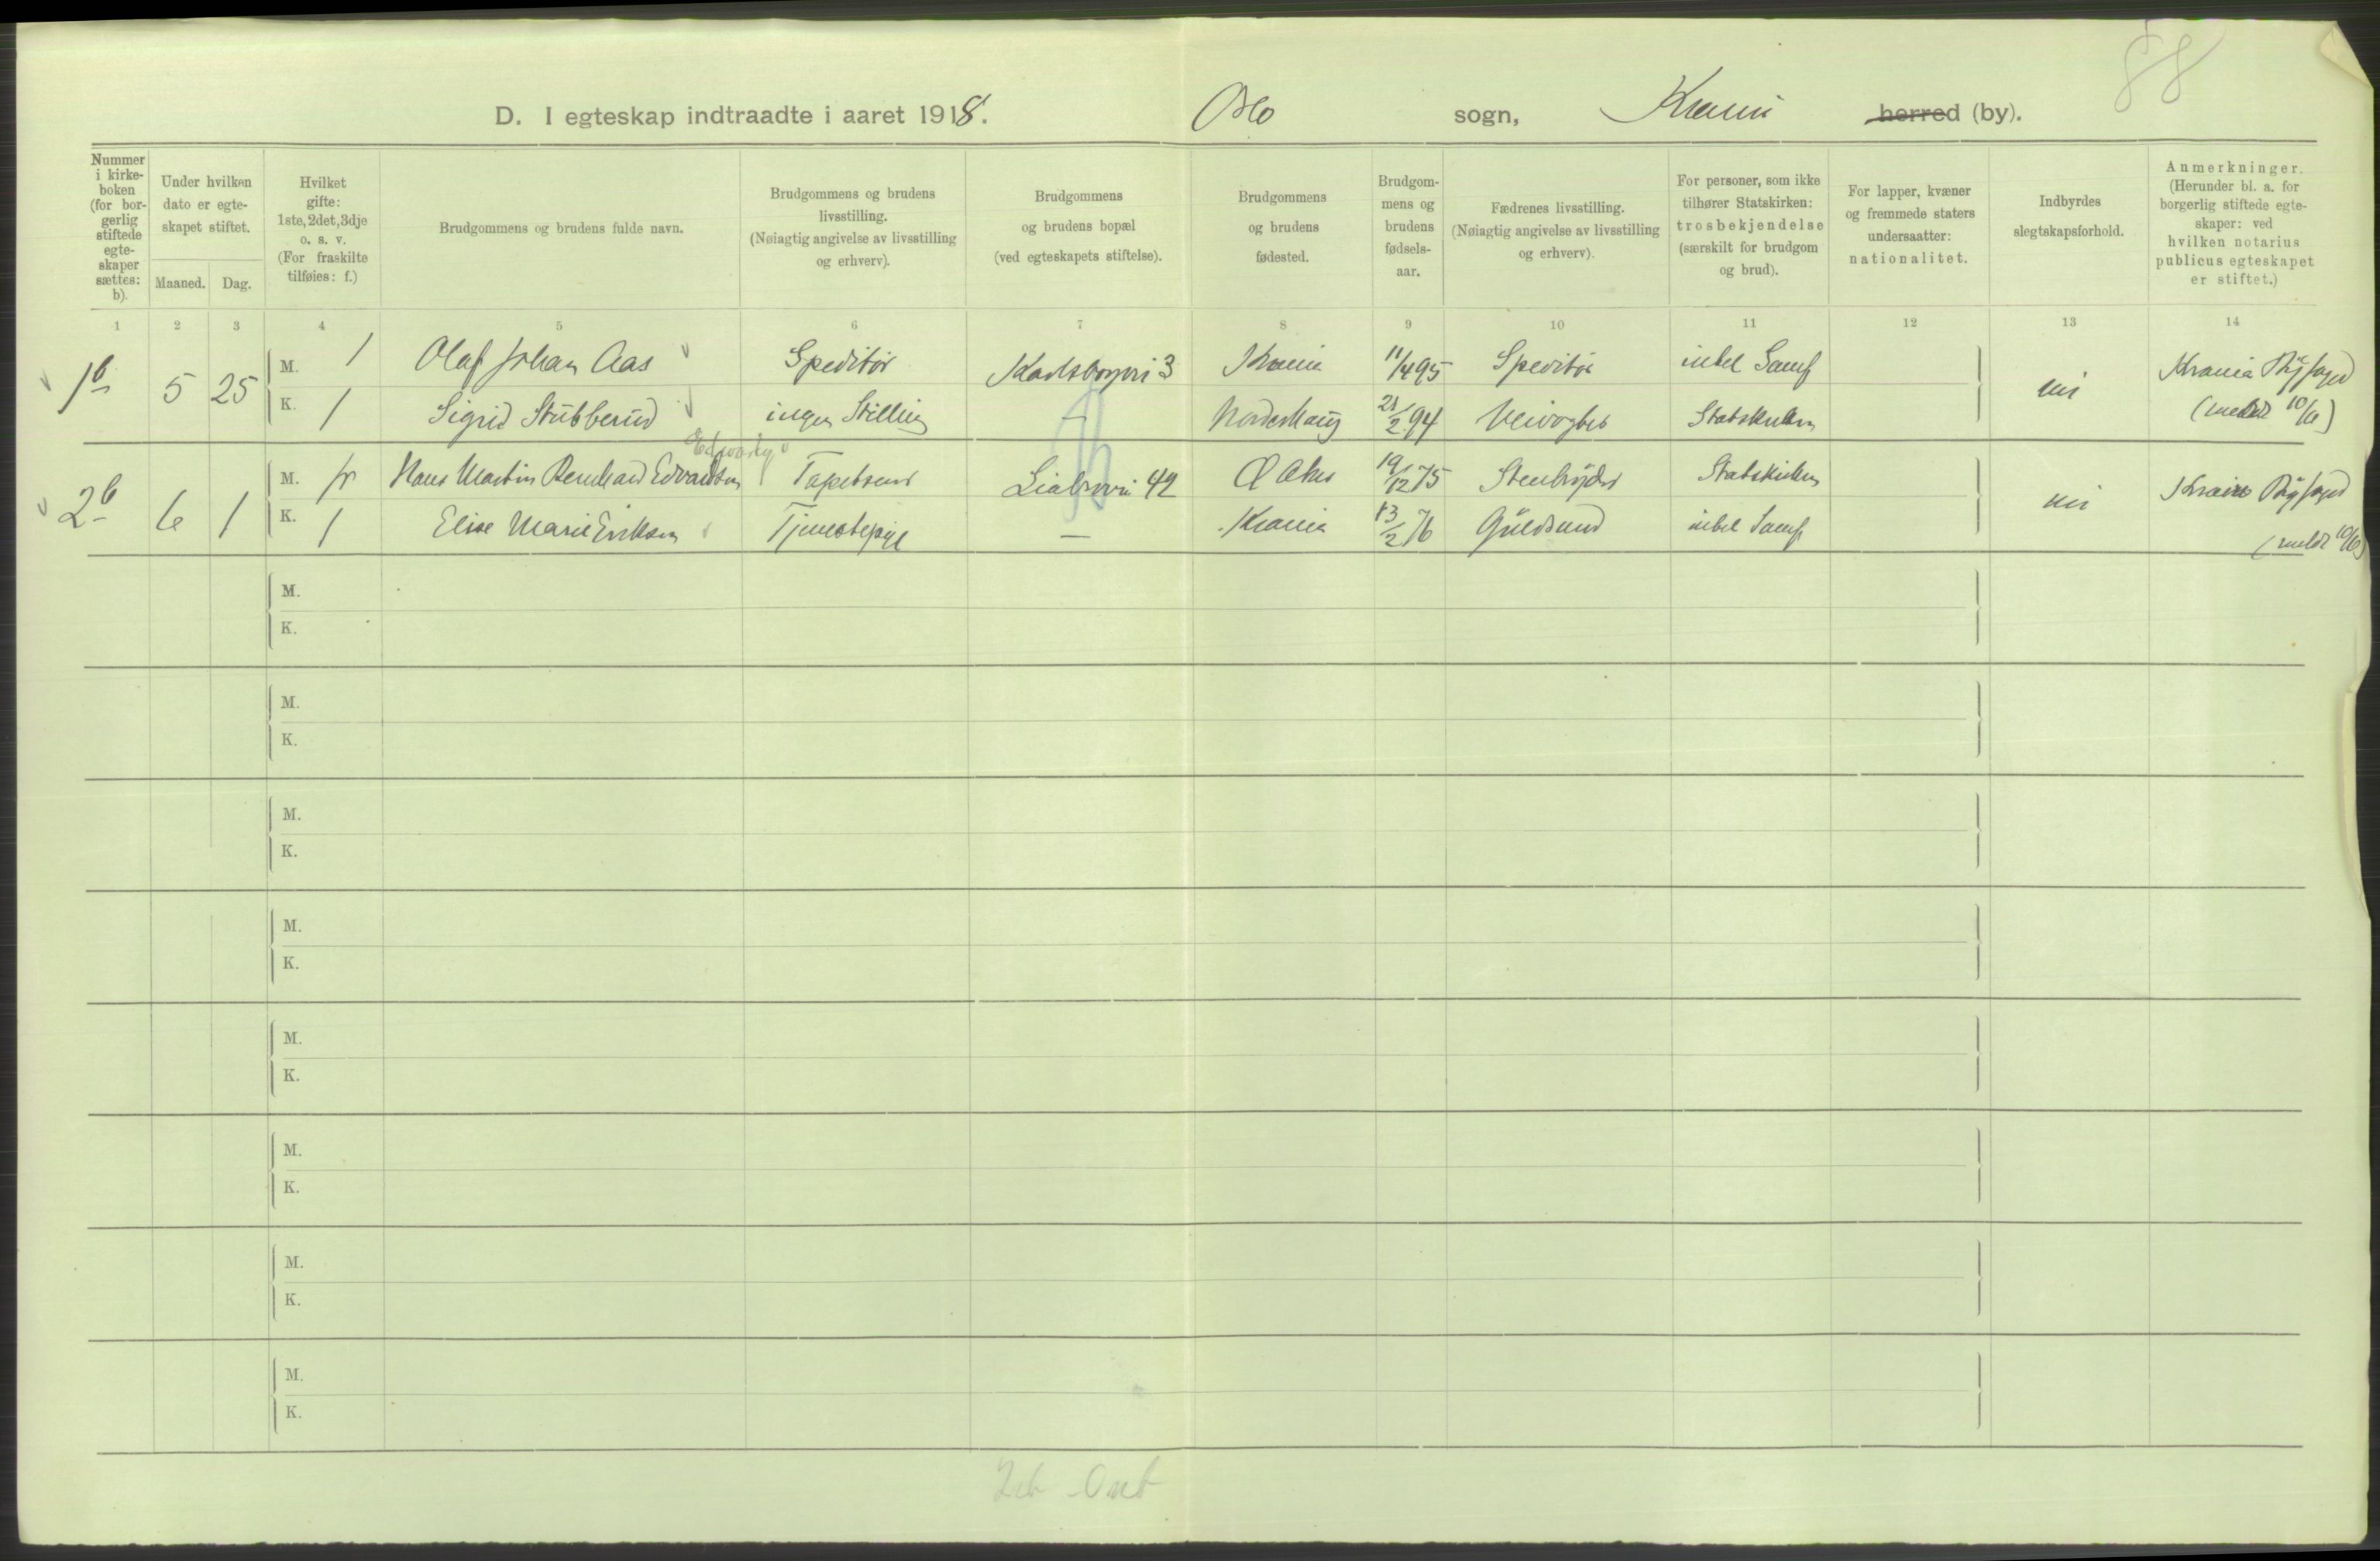 88
D. I egteskap indtraadte i aaret 1918. Oslo sogn, Krania herred (by).
Nummer i kirke-boken (for bor-gerlig stiftede egte-skaper sættes: b).
Under hvilken dato er egte-skapet stiftet.
Maaned. Dag.
Hvilket gifte: 1ste, 2det, 3dje o. s. v. (For fraskilte tilføies: f.)
Brudgommens og brudens fulde navn.
Brudgommens og brudens livsstilling. (Nøiagtig angivelse av livsstilling og erhverv).
Brudgommens og brudens bopæl (ved egteskapets stiftelse).
Brudgommens og brudens fødested.
Brudgom-mens og brudens fødsels-aar.
Fædrenes livsstilling. (Nøiagtig angivelse av livsstilling og erhverv).
For personer, som ikke tilhører Statskirken: trosbekjendelse (særskilt for brudgom og brud).
For lapper, kvæner og fremmede staters undersaatter: nationalitet.
Indbyrdes slegtskapsforhold.
Anmerkninger. (Herunder bl. a. for borgerlig stiftede egte-skaper: ved hvilken notarius publicus egteskapet er stiftet.)
1 2 3 4 5 6 7 8 9 10 11 12 13 14
1b 5 25 M. 1 Olaf Johan Aas Speditør 3 Krania 11/4 95 Speditør Krania Byfoged
K. 1 Sigrid Stubberud ingen Stilling - Norderhaug 21/2 94 Statskirken (meldt 10/6)
2b 6 1 M. fr Hans Martin Bernhard Edvardsen 42 Ø Aker 19/12 75 Stenbryder Statskirken Krania Byfoged
K. 1 Elise Marie Eriksen Tjenestepige - Krania 13/2 76 (meldt 10/6)
M.
K.
M.
K.
M.
K.
M.
K.
M.
K.
M.
K.
M.
K.
M.
K.